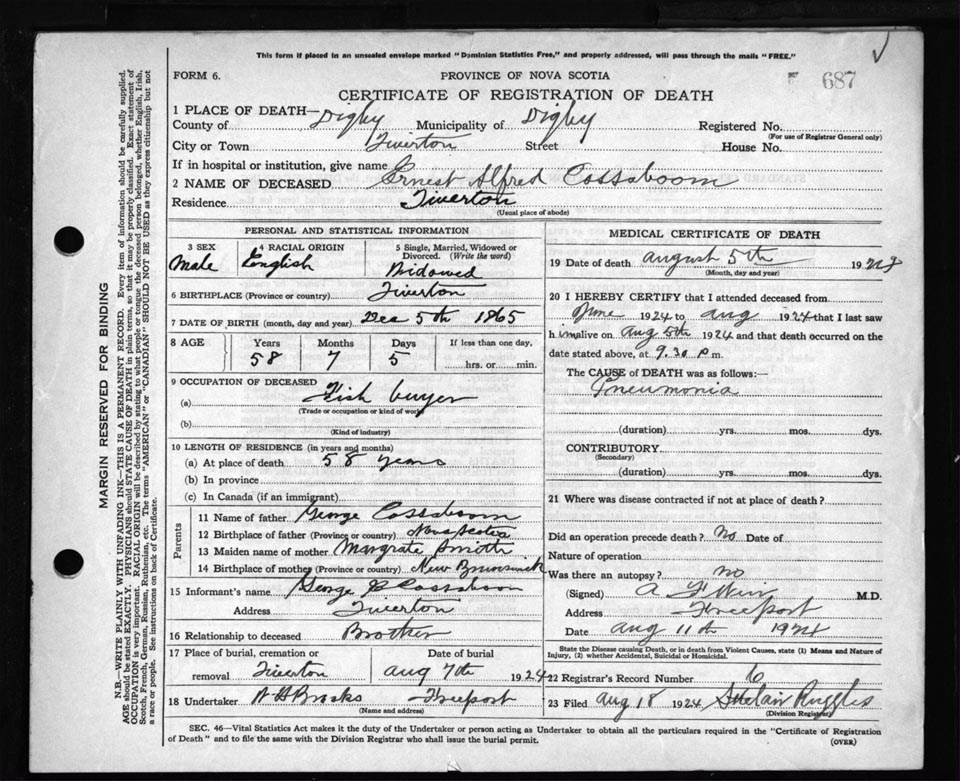 This form if placed in an unsealed envelope marked "Dominion Statistics Free," and properly addressed, will pass through the mails "FREE."
FORM 6.
PROVINCE OF NOVA SCOTIA
687
CERTIFICATE OF REGISTRATION OF DEATH
1 PLACE OF DEATH— Digby
County of Municipality of Digby Registered No.
(For use of Registrar General only)
City or Town Tiverton Street House No.
If in hospital or institution, give name
2 NAME OF DECEASED Ernest Alfred Cossaboom
Residence Tiverton
(Usual place of abode)
PERSONAL AND STATISTICAL INFORMATION
3 SEX 4 RACIAL ORIGIN 5 Single, Married, Widowed or Divorced. (Write the word)
Male English Widowed
6 BIRTHPLACE (Province or country) Tiverton
7 DATE OF BIRTH (month, day and year) Dec 5th 1865
8 AGE Years Months Days If less than one day,
58 7 5 hrs. or min.
9 OCCUPATION OF DECEASED
(a) Fish buyer
(Trade or occupation or kind of work)
(b)
(Kind of industry)
10 LENGTH OF RESIDENCE (in years and months)
(a) At place of death 58 years
(b) In province
(c) In Canada (if an immigrant)
Parents
11 Name of father George Cossaboom
12 Birthplace of father (Province or country) Nova Scotia
13 Maiden name of mother Margrate Smith
14 Birthplace of mother (Province or country) New Brunswick
15 Informant's name George P Cossaboom
Address Tiverton
16 Relationship to deceased Brother
17 Place of burial, cremation or Date of burial
removal Tiverton Aug 7th 1924
18 Undertaker W H Brooks Freeport
(Name and address)
MEDICAL CERTIFICATE OF DEATH
19 Date of death August 5th 1924
(Month, day and year)
20 I HEREBY CERTIFY that I attended deceased from
June 1924 to Aug 1924 that I last saw
him alive on Aug 5th 1924 and that death occurred on the
date stated above, at 9.30 p m.
The CAUSE of DEATH was as follows:—
Pneumonia
(duration) yrs. mos. dys.
CONTRIBUTORY
(Secondary)
(duration) yrs. mos. dys.
21 Where was disease contracted if not at place of death?
Did an operation precede death? No Date of
Nature of operation
Was there an autopsy? no
(Signed) A F Weir M.D.
Address Freeport
Date Aug 11th 1924
State the Disease causing Death, or in death from Violent Causes, state (1) Means and Nature of
Injury, (2) whether Accidental, Suicidal or Homicidal.
22 Registrar's Record Number 6
23 Filed Aug 18 1924 Ruggles
(Division Registrar)
SEC. 46—Vital Statistics Act makes it the duty of the Undertaker or person acting as Undertaker to obtain all the particulars required in the "Certificate of Registration
of Death" and to file the same with the Division Registrar who shall issue the burial permit.
(OVER)
MARGIN RESERVED FOR BINDING
N.B.—WRITE PLAINLY WITH UNFADING INK—THIS IS A PERMANENT RECORD. Every item of information should be carefully supplied.
AGE should be stated EXACTLY. PHYSICIANS should STATE CAUSE OF DEATH in plain terms, so that it may be properly classified. Exact statement of
OCCUPATION is very important. RACIAL ORIGIN will be described by stating to what people or tongue the deceased person belonged, whether English, Irish,
Scotch, French, German, Russian, Ruthenian, etc. The terms "AMERICAN" or "CANADIAN" SHOULD NOT BE USED as they express citizenship but not
a race or people. See instructions on back of Certificate.